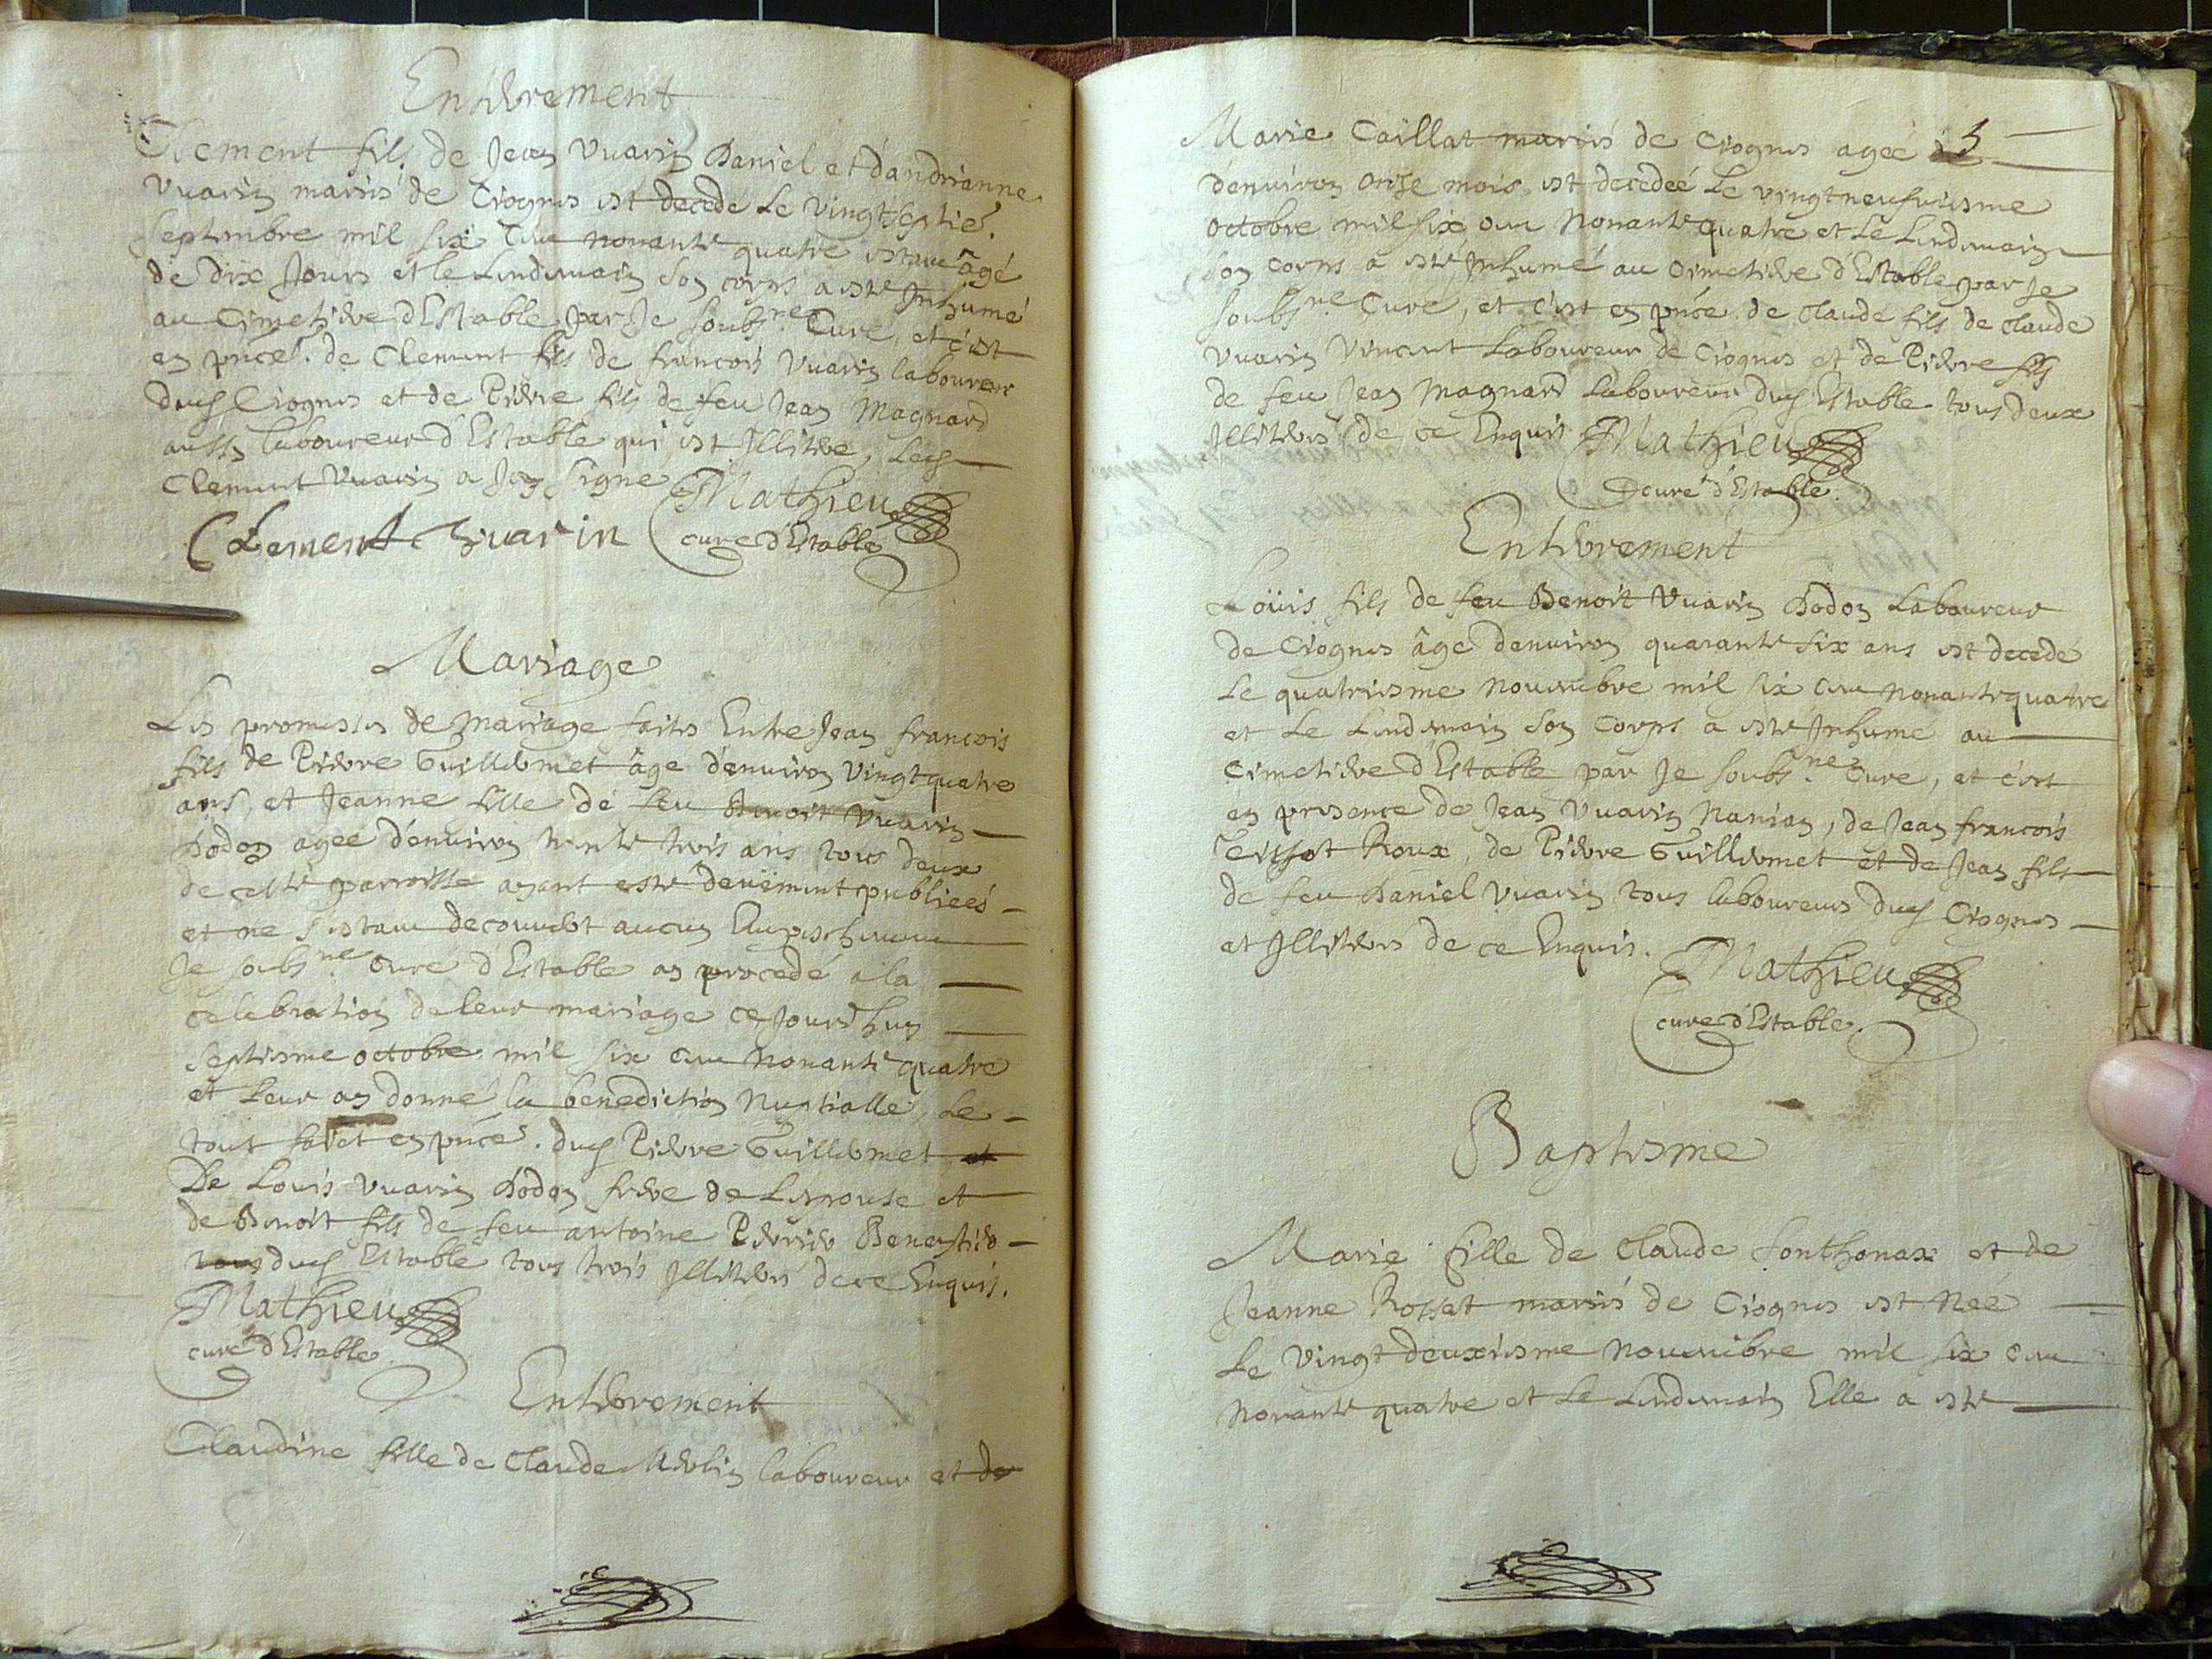 Enterrement
Clement fils de Jean Vuarin Daniel et d'andrianne
Vuarin mariés de Ciognes est decedé Le vingtseptie.
septembre mil six cent nonante quatre estant âgé
de dix Jours et le Lendemain son corps a esté Inhumé
au Cimetiere d'Estable par Je soubs.né Curé, et c'est
en pnce. de Clement fils de françois Vuarin laboureur
dud Ciognes et de Pierre fils de feu Jean Magnard
aussy laboureur d'Estable qui est Illitere, led
Clement Vuarin a Icy signé Mathieu
Clement Vuarin curé d'Estable
Mariage
Les promesses de Mariage faites Entre Jean françois
fils de Pierre Guillermet âgé d'enuiron vingtquatre
ans, et Jeanne fille de feu Benoit Vuarin
Dodon agée d'enuiron trente trois ans tous deux
de cette parroisse ayant esté deuëment publieés
et ne s'estant decouuert aucun Empeschement
Je soubs.né Curé d'Estable ay procedé a la
celebration de leur mariage ce Jourd'huy
septiesme octobre mil six cent nonante quatre
et leur ay donné la benediction Nuptialle, Le
tout fait en pnce. dud Pierre Guillermet et
De Louis Vuarin Dodon frere de Lespouse et
de Benoit fils de feu antoine Perrier
tous dud Estable tous trois Illiterés de ce Enquis.
Mathieu
curé d'Estable
Enterrement
Claudine fille de Claude Merlin laboureur et de
5
Marie Caillat mariés de Ciognes agée
d'enuiron onze mois est decedeé Le vingtneufuiesme
octobre mil six cent Nonante quatre et Le Lendemain
son corps a esté Inhumé au cimetiere d'Estable par Je
soubs.né Curé, et c'est en pnce. de Claude fils de Claude
Vuarin Vincent Laboureur de Ciognes et de Pierre fils
de feu Jean Magnard Laboureur dud Estable tous deux
Illiterés de ce Enquis Mathieu
curé d'Estable.
Enterrement
Loüis fils de feu Benoit Vuarin Dodon Laboureur
de Ciognes âgé d'enuiron quarante six ans est decedé
Le quatriesme Nouembre mil six cent nonantequatre
et Le Lendemain son Corps a esté Inhumé au
Cimetiere d'Estable par Je soubs.né Curé, et c'est
en presence de Jean Vuarin Nanian, de Jean françois
Teissot Roux, de Pierre Guillermet et de Jean fils
de feu Daniel Vuarin tous laboureurs dud Ciognes
et Illiterés de ce Enquis. Mathieu
curé d'Estable.
Baptesme
Marie fille de Claude fonthonax et de
Jeanne Rosset mariés de Ciognes est Neé
Le vingt deuxiesme Nouembre mil six cent
Nonante quatre et Le Lendemain Elle a esté